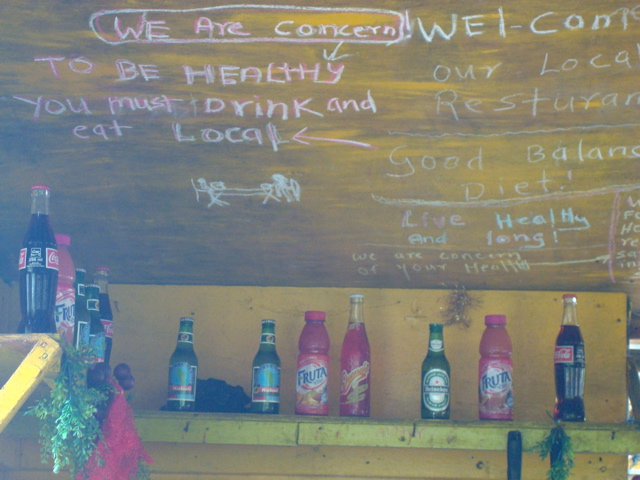 WE Are Concern!
TO BE HEALTHY
You must Drink and
eat Local
WEl-Com
our Local
Resturan
Good Balanc
Diet!
Live Healthy
and long!
we are concern
of your Health
FRUTA
FRUTA
Heineken
FRUTA
Coca-Cola